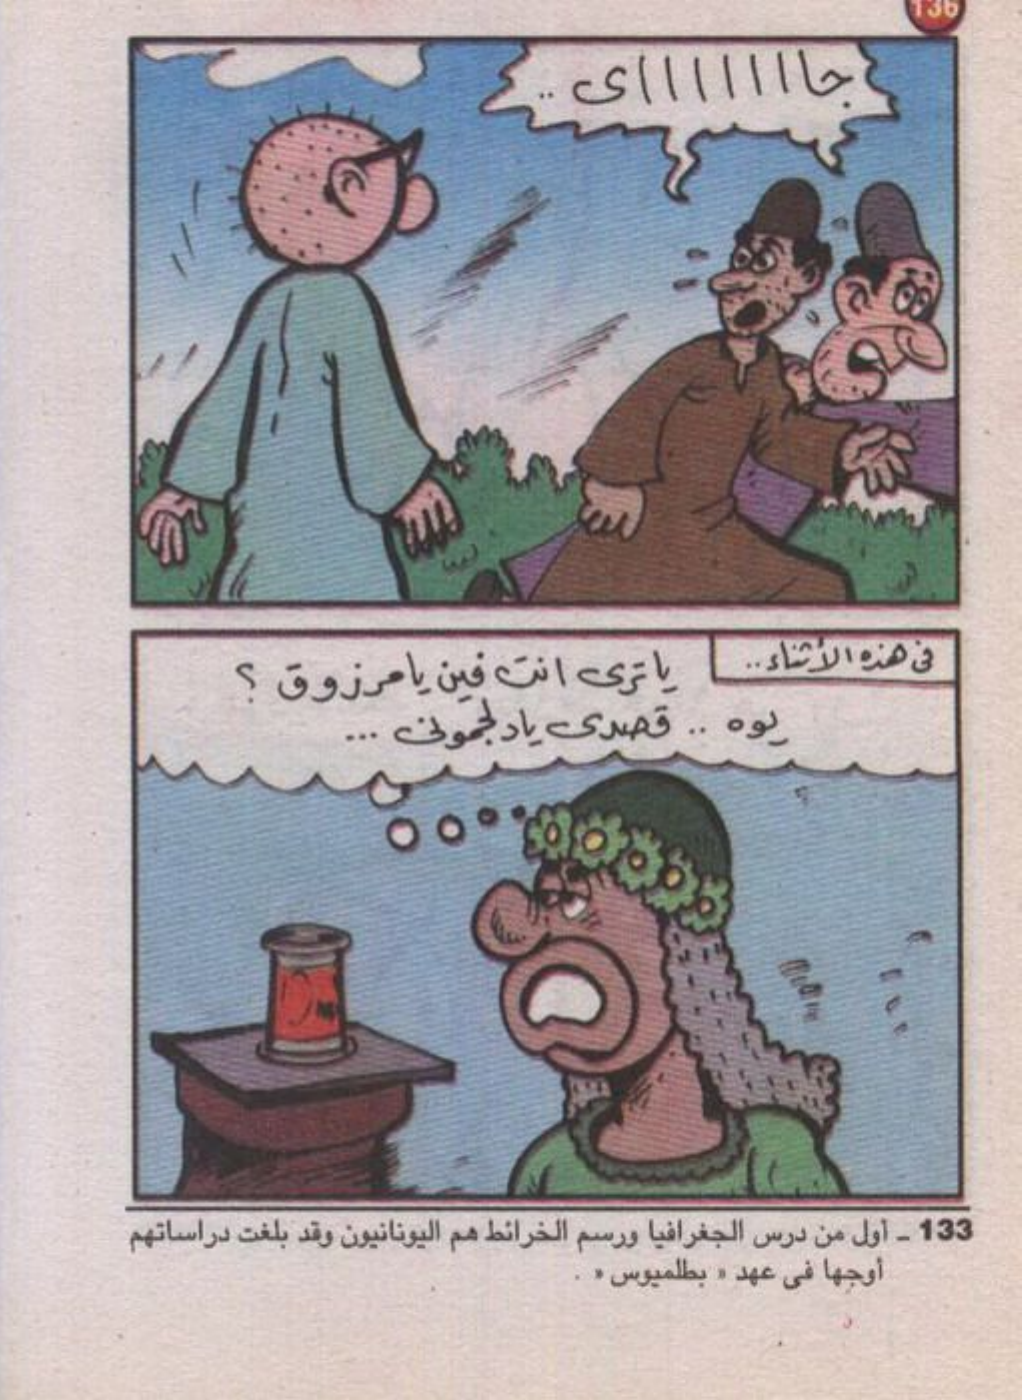 136
جااااااااى ..
فى هذه الأثناء ..
يا ترى انت فين يا مرزوق ؟
يوه .. قصدى يا دلجمونى ...
133 ـ أول من درس الجغرافيا ورسم الخرائط هم اليونانيون وقد بلغت دراساتهم
أوجها فى عهد « بطلميوس » .